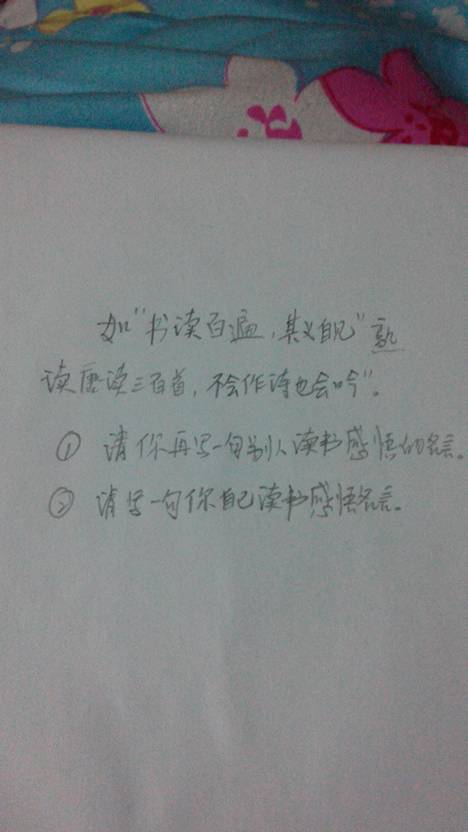 如“书读百遍，其义自见”熟
读唐读三百首，不会作诗也会吟”。
① 请你再写一句别人读书感悟的名言。
② 请写一句你自己读书感悟名言。